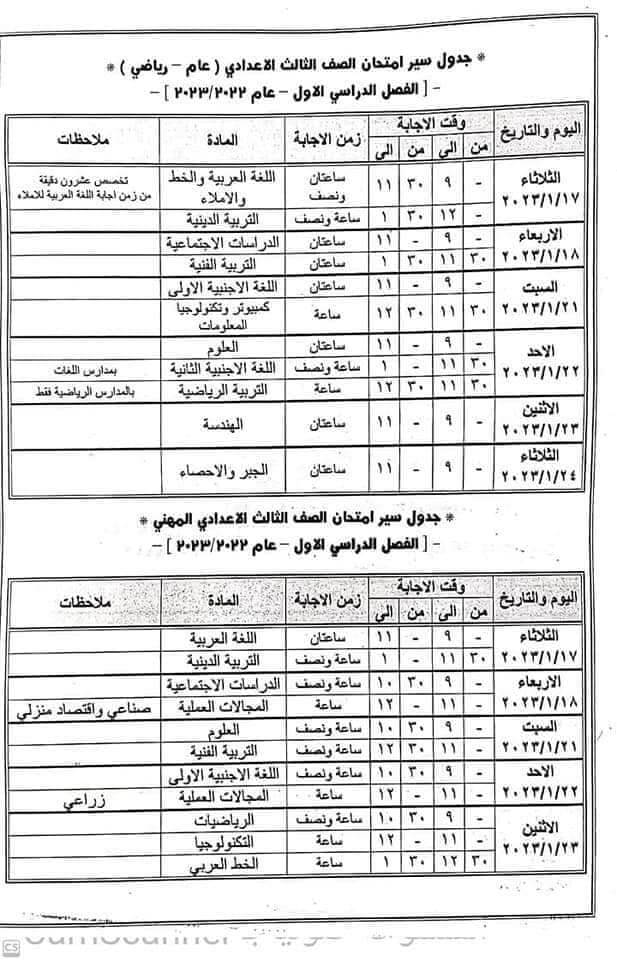 * جدول سير امتحان الصف الثالث الاعدادي ( عام – رياضي ) *
- [ الفصل الدراسي الاول – عام ٢٠٢٣/٢٠٢٢ ] -
اليوم والتاريخ وقت الاجابة زمن الاجابة المادة ملاحظات
من الى من الى
الثلاثاء ٢٠٢٣/١/١٧
- ٩ ٣٠ ١١ ساعتان ونصف اللغة العربية والخط والاملاء تخصص عشرون دقيقة من زمن اجابة اللغة العربية للاملاء
- ١٢ ٣٠ ١ ساعة ونصف التربية الدينية
الاربعاء ٢٠٢٣/١/١٨
- ٩ - ١١ ساعتان الدراسات الاجتماعية
٣٠ ١١ ٣٠ ١ ساعتان التربية الفنية
السبت ٢٠٢٣/١/٢١
- ٩ - ١١ ساعتان اللغة الاجنبية الاولى
٣٠ ١١ ٣٠ ١٢ ساعة كمبيوتر وتكنولوجيا المعلومات
الاحد ٢٠٢٣/١/٢٢
- ٩ - ١١ ساعتان العلوم
٣٠ ١١ - ١ ساعة ونصف اللغة الاجنبية الثانية بمدارس اللغات
٣٠ ١١ ٣٠ ١٢ ساعة التربية الرياضية بالمدارس الرياضية فقط
الاثنين ٢٠٢٣/١/٢٣
- ٩ - ١١ ساعتان الهندسة
الثلاثاء ٢٠٢٣/١/٢٤
- ٩ - ١١ ساعتان الجبر والاحصاء
* جدول سير امتحان الصف الثالث الاعدادي المهني *
- [ الفصل الدراسي الاول – عام ٢٠٢٣/٢٠٢٢ ] -
اليوم والتاريخ وقت الاجابة زمن الاجابة المادة ملاحظات
من الى من الى
الثلاثاء ٢٠٢٣/١/١٧
- ٩ - ١١ ساعتان اللغة العربية
٣٠ ١١ - ١ ساعة ونصف التربية الدينية
الاربعاء ٢٠٢٣/١/١٨
- ٩ ٣٠ ١٠ ساعة ونصف الدراسات الاجتماعية
- ١١ - ١٢ ساعة المجالات العملية صناعي واقتصاد منزلي
السبت ٢٠٢٣/١/٢١
- ٩ ٣٠ ١٠ ساعة ونصف العلوم
- ١١ ٣٠ ١٢ ساعة ونصف التربية الفنية
الاحد ٢٠٢٣/١/٢٢
- ٩ ٣٠ ١٠ ساعة ونصف اللغة الاجنبية الاولى
- ١١ - ١٢ ساعة المجالات العملية زراعي
الاثنين ٢٠٢٣/١/٢٣
- ٩ ٣٠ ١٠ ساعة ونصف الرياضيات
- ١١ - ١٢ ساعة التكنولوجيا
٣٠ ١٢ ٣٠ ١ ساعة الخط العربي
CS